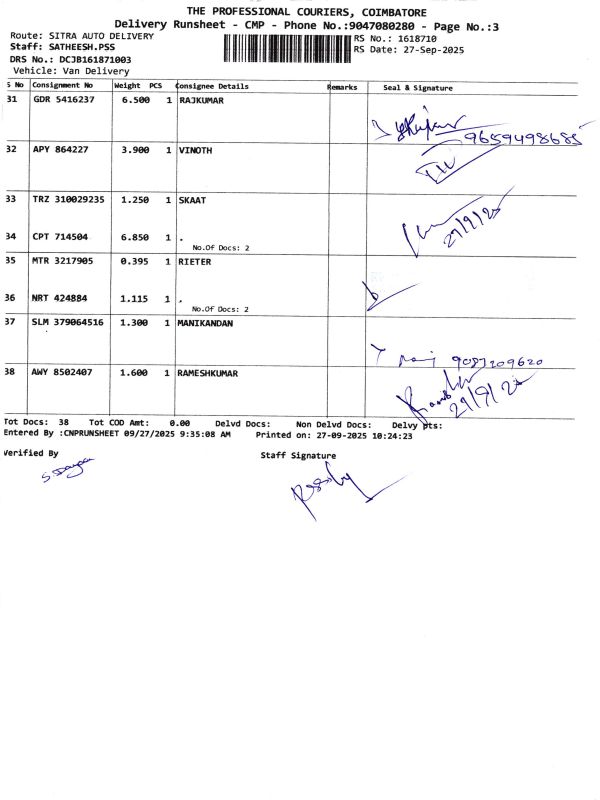 THE PROFESSIONAL COURIERS, COIMBATORE
Delivery Runsheet - CMP - Phone No.:9047080280 - Page No.:3
Route: SITRA AUTO DELIVERY RS No.: 1618710
Staff: SATHEESH.PSS RS Date: 27-Sep-2025
DRS No.: DCJB161871003
Vehicle: Van Delivery
S No Consignment No Weight PCS Consignee Details Remarks Seal & Signature
31 GDR 5416237 6.500 1 RAJKUMAR
9659498685
32 APY 864227 3.900 1 VINOTH
33 TRZ 310029235 1.250 1 SKAAT
27/9/25
34 CPT 714504 6.850 1 .
No.Of Docs: 2
35 MTR 3217905 0.395 1 RIETER
36 NRT 424884 1.115 1 .
No.Of Docs: 2
37 SLM 379064516 1.300 1 MANIKANDAN
9087209620
38 AWY 8502407 1.600 1 RAMESHKUMAR
Tot Docs: 38 Tot COD Amt: 0.00 Delvd Docs: Non Delvd Docs: Delvy pts:
Entered By :CNPRUNSHEET 09/27/2025 9:35:08 AM Printed on: 27-09-2025 10:24:23
Verified By Staff Signature